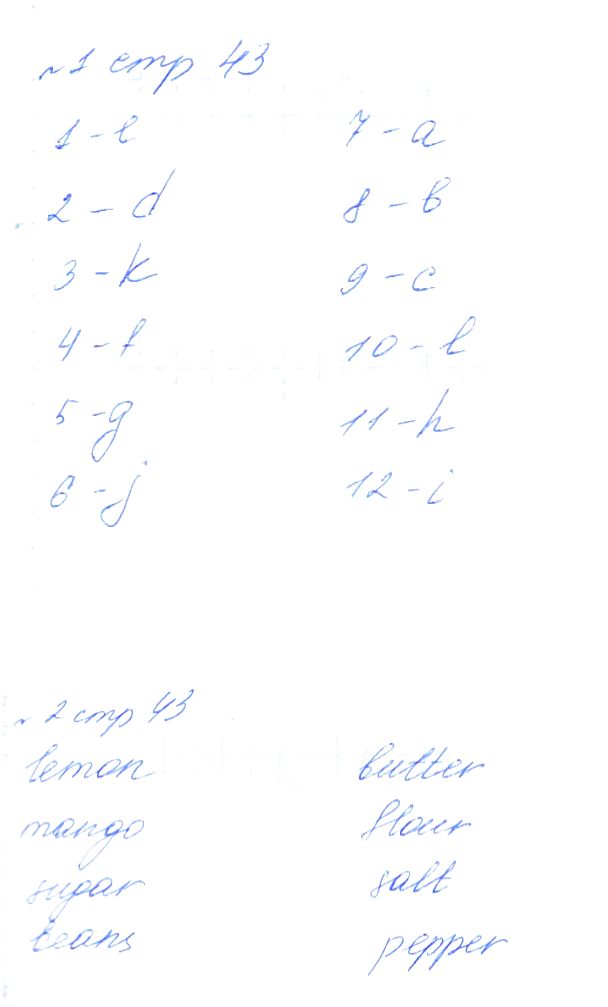 №1 стр 43
1 - e
2 - d
3 - k
4 - f
5 - g
6 - j
7 - a
8 - b
9 - c
10 - l
11 - h
12 - i
№2 стр 43
lemon
mango
sugar
beans
butter
flour
salt
pepper